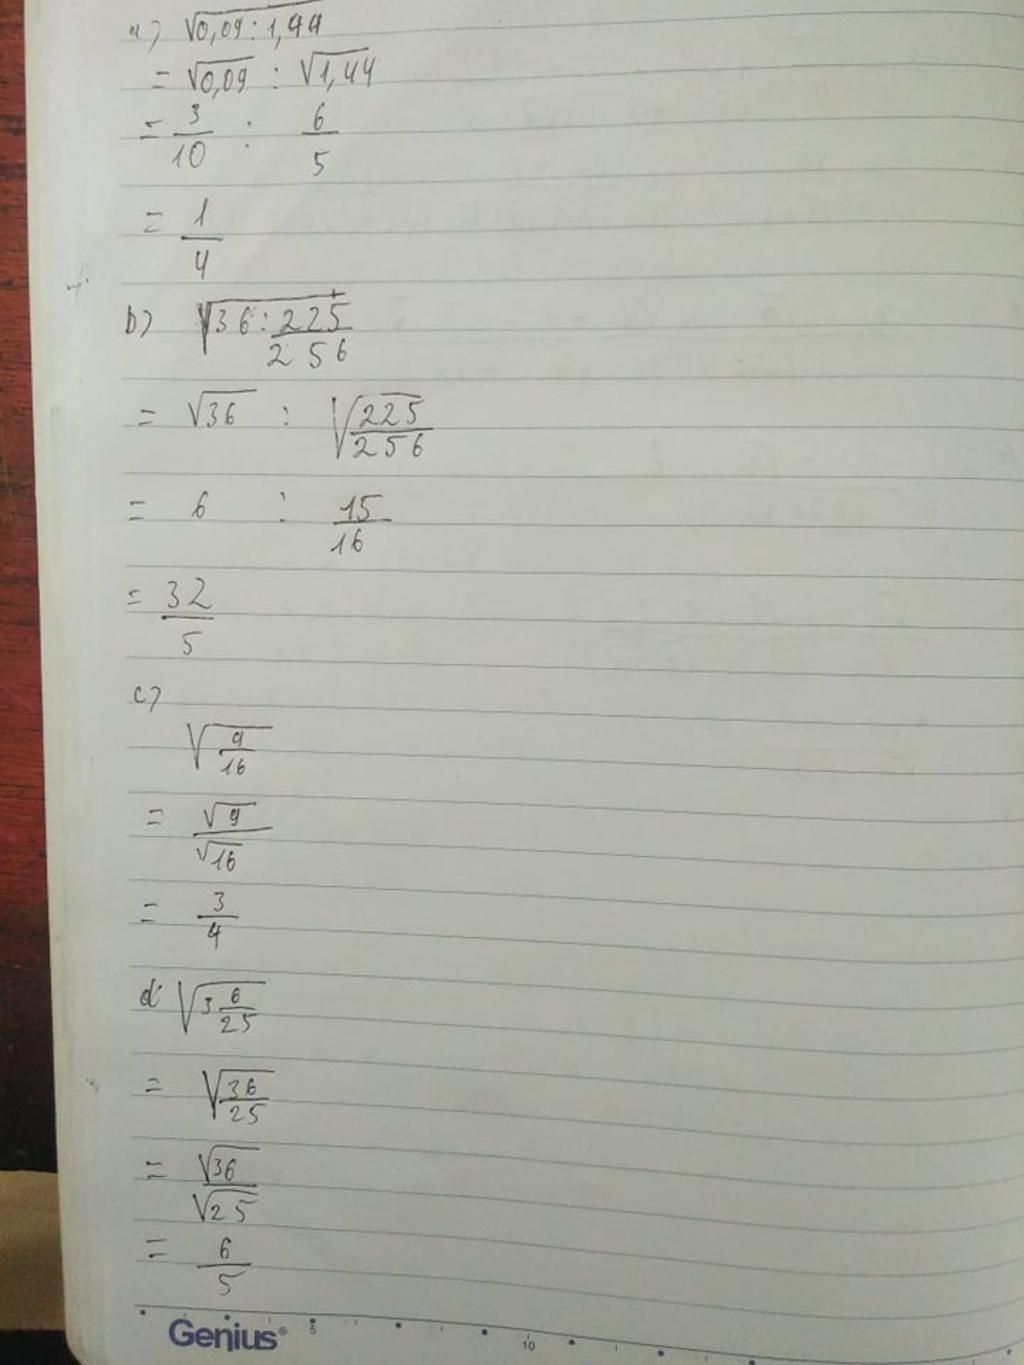 a) √0,09 : 1,44
= √0,09 : √1,44
= 3/10 : 6/5
= 1/4
b) √36 : 225/256
= √36 : √225/256
= 6 : 15/16
= 32/5
c)
√9/16
= √9/√16
= 3/4
d √3 6/25
= √36/25
= √36/√25
= 6/5
Genius® 5 10